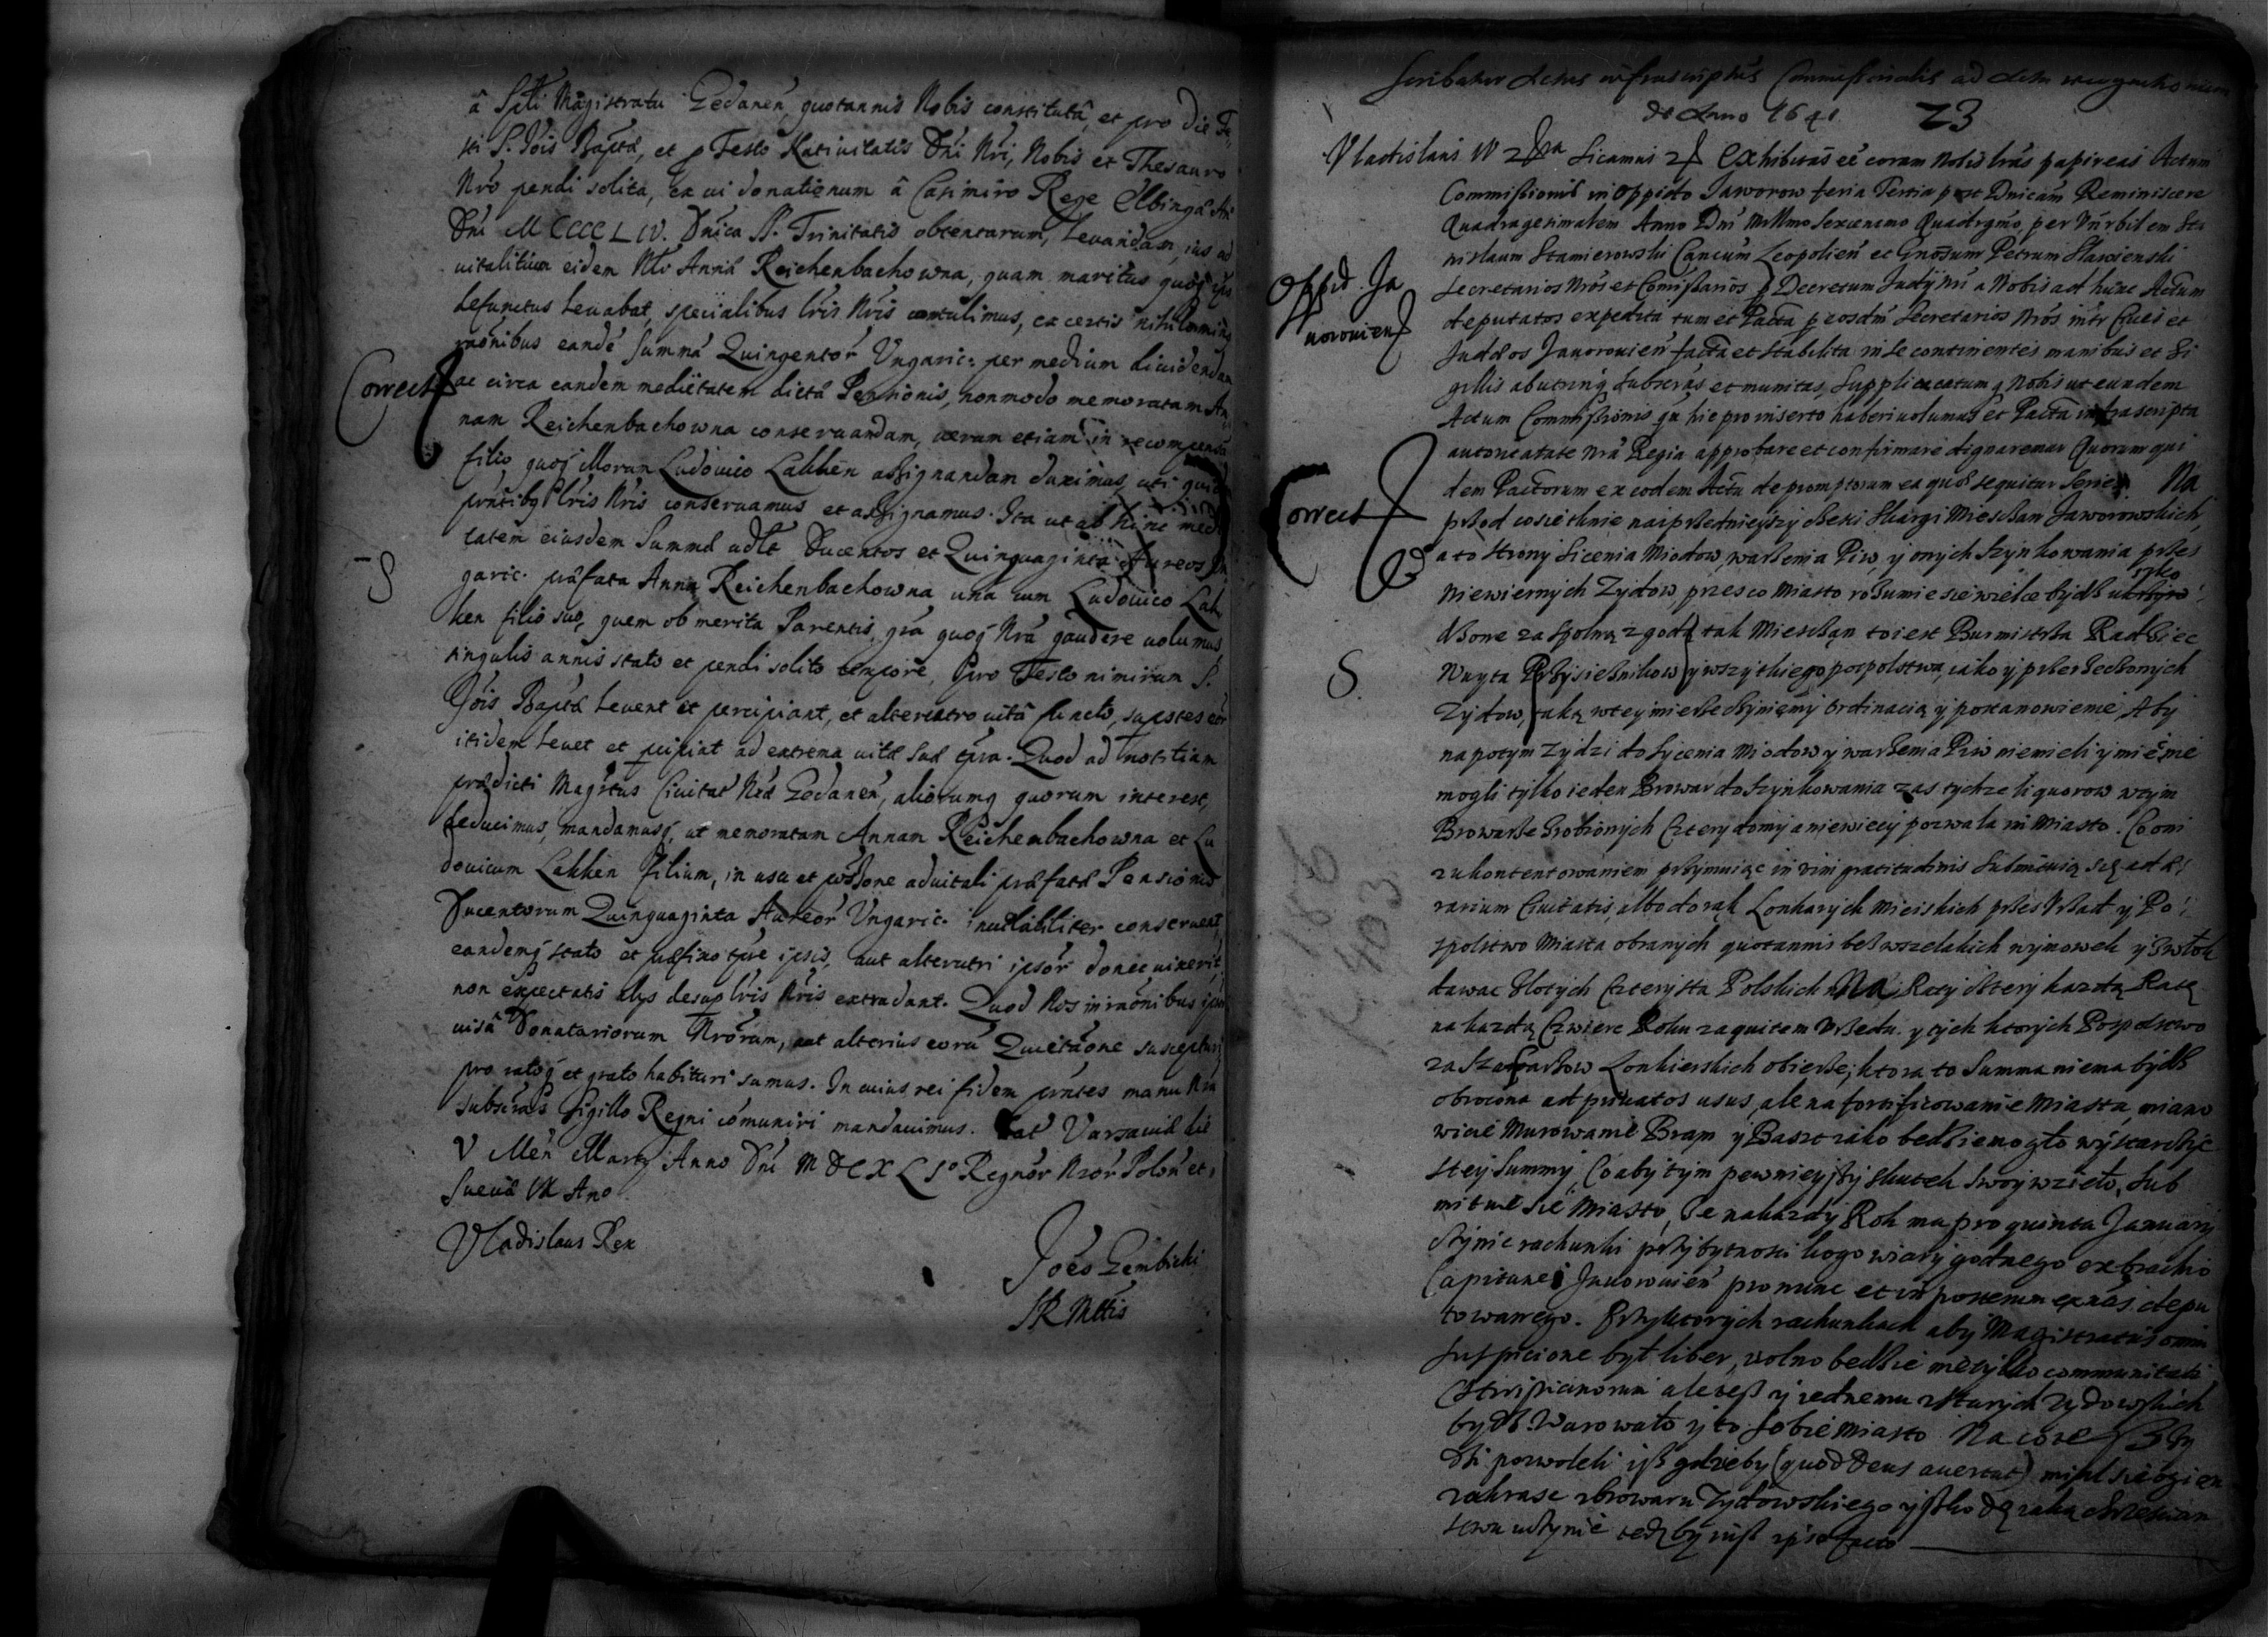 â Spli Magistratu Gedanen, quotannis Nobis constitutâ, et pro die Fe
sti S. Jois Baptæ, et p Festo Nativitatis Dni Nri, Nobis et Thesauro
Nro pendi solita, ex vi donationum â Casimiro Rege Elbingæ An
Dni MCCCCLIV. Dnica SS. Trinitatis obtentarum, levandam, ius ad
vitalitium eidem Nli Annæ Reichenbachowna, quam maritus quoq ips
defunctus levabat, specialibus lris Nris contulimus, ex certis nihilominus
raonibus eandē Summā Quingentor Ungaric: per medium dividendam
Correct
ac circa eandem medietatem dictæ Pensionis, non modo memoratam An
nam Reichenbachowna conservandam, verum etiam in recompensā
filio quoq illorum Ludovico Lakken assignandam duximus, uti quid
pntibq lris Nris conservamus et assignamus. Ita ut ab hinc medi
tatem eiusdem Summæ vdlt Ducentos et Quinquaginta Aureos Un
S
garic. præfata Anna Reichenbachowna una cum Ludovico Lak
ken filio suo, quem ob merita Parentis, gra quoq Nra gaudere volumus,
singulis annis stato et pendi solito tempore, pro Festo nimirum S.
Jois Baptæ levent et percipiant, et alterutro vitâ functo, supstes eor
itidem levet et pcipiat ad extrema vitæ suæ tpra. Quod ad notitiam
prædicti Magrtus Civitat Nræ Gedanen, aliorumq quorum interest,
deducimus, mandamusq, ut memoratam Annam Reichenbachowna et Lu
dovicum Lakken filium, in usu et possone advitali præfatæ Pensionis
Ducentorum Quinquaginta Aureor Ungaric. inviolabiliter conservent,
eandemq stato et præfixo tpre ipsis, aut alterutri ipsor donec vixerit,
non expectatis alys desup lris Nris extradant. Quod Nos in raonibus ipsi
visâ Donatariorum Nrorum, aut alterius eorū Quietaone suscepturi
pro ratoq et grato habituri sumus. In cuius rei fidem pntes manu Nra
subscras Sigillo Regni cōmuniri mandavimus. Dat Varsaviæ die
V Men Marty Anno Dni MDCXLIo Regnor Nror Polon et
Sueciæ IX Ano
Vladislaus Rex
Joes Gembicki
SR Mttis
Scribatur Actus infrascriptus Commissionalis ad Acta
de Anno 1641 73
Vladislaus IV Sicamus Exhibitas eē coram Nobis lras papireas Actum
Commissionis in Oppido Jaworow feria Tertia post Dnicam Reminiscere
Quadragesimalem Anno Dni Millmo Sexcenmo Quadrgmo, per Vnrbilem Sta
nislaum Stamierowski Cancum Leopolien et Gnosum Petrum Slawienski
Oppid. Ja
vorovien
Secretarios Nros et Comissarios p Decretum Judij Nri a Nobis ad hunc Actum
deputatos expedita tum et Pacta p eosdm Secretarios Nros intr Cives et
Judæos Javorovien facta et stabilita in se continentes manibus et Si
gillis ab utrinq subscras et munitas, Supplicatumq Nobis ut eundem
Actum Commissionis qu hic pro inserto haberi volumus et Pacta infrascripta
autoritate Nra Regia approbare et confirmare dignaremur Quorum qui
dem Pactorum ex eodem Actu depromptorum ea quæ sequitur Series. Na
Correct
przod co sie tknie naiprzednieyszy dxesci Skargi Mieszczan Jaworowskich,
a to strony Sicenia Miodow, warzenia Piw, y onych szynkowania przes
niewiernych Zydow, przes co Miasto rozumie sie wielce bydz uszko
dzone za spolną zgodą tak Mieszczan to iest Burmistrza Radziec
S.
Wuyta Przysieznikow y wszytkiego pospolstwa, iako y przerzeczonych
Zydow, taką w tey mierze czyniemy ordinacią y postanowienie, Aby
napotym Zydzi do Sycenia Miodow y warzenia Piw niemieli y mieć nie
mogli tylko ieden Browar do Szynkowania zas tychze liquorow w tym
Browarze zrobionych Cztery domy a niewiecy pozwala im Miasto. Co oni
z ukontentowaniem przyimuiąc in vim gratitudinis Submituią się ad Æ
rarium Civitatis albo do rąk Lonharych Mieiskich przes Vrząd y Po
spolstwo Miasta obranych quotannis bez wszelakich wymowek y zwłok
dawac Złotych Czterysta Polskich Na Raty cztery kazdą Ratę
na kazdą Czwierc Roku za quitem Vrzedu y tych ktorych Pospolstwo
za Szafarzow Lonkierskich obierze, ktora to Summa niema bydz
obrocona ad privatos usus, ale na fortificowanie Miasta miano
wicie Murowanie Bram y Baszt iako bedzie mogło wystarczyc
z tey Summy, Co aby tym pewnieyszy skutek swoy wzieło, Sub
mitue sie Miasto, ze na kazdy Rok ma pro quinta January
czynic rachunki przy bytnosci kogo wiary godnego ex brachio
Capitanei Javorovien pro nunc et in posterum ex nas depu
towanego. Przy ktorych rachunkach aby Magistratus omni
suspicione był liber, wolno bedzie nie tylko communitati
Christianorum ale tesz y iednemu z starych Zydowskich
bydz. Warowało y to sobie Miasto Na co tesz Zy
dzi pozwoleli isz gdzieby (quod Deus avertat) miał sie ogien
zakrasc z browaru Zydowskiego y szkodę iaką chrzescian
stwu uczynic tedyby iusz ipso facto